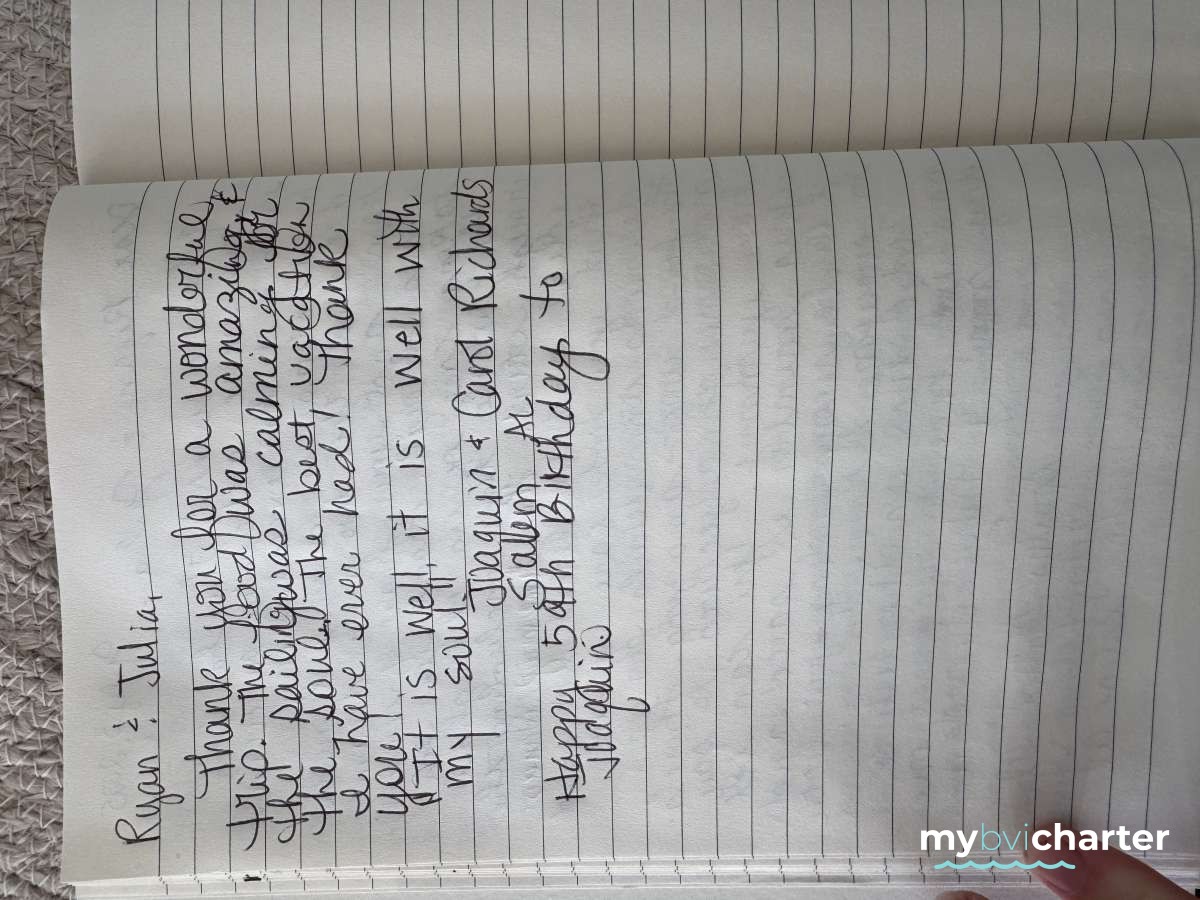 Ryan & Julia,
Thank you for a wonderful
trip. The food was amazing &
the sailing was calming for
the soul. The best vacation
I have ever had! Thank
you!
"It is well, it is well with
my soul."
Joaquin & Carol Richards
Salem AL
Happy 50th Birthday to
Joaquin
mybvicharter